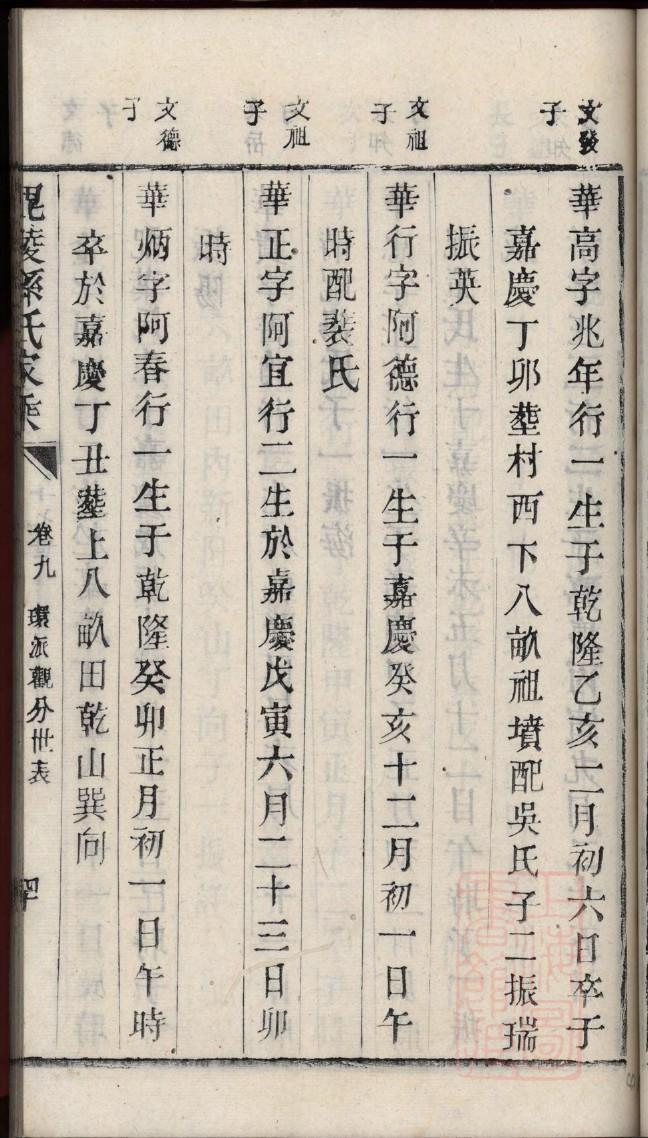 文發
子
華高字兆年行一生于乾隆乙亥二月初六日卒于
嘉慶丁卯塟村西下八畝祖墳配吳氏子二振瑞
振英
文祖
子
華行字阿德行一生于嘉慶癸亥十二月初一日午
時配裴氏
文祖
子
華正字阿宜行二生於嘉慶戊寅六月二十三日卯
時
文德
子
華炳字阿春行一生于乾隆癸卯正月初一日午時
卒於嘉慶丁丑塟上八畝田乾山巽向
毘陵孫氏家乘
卷九 環派觀分世表